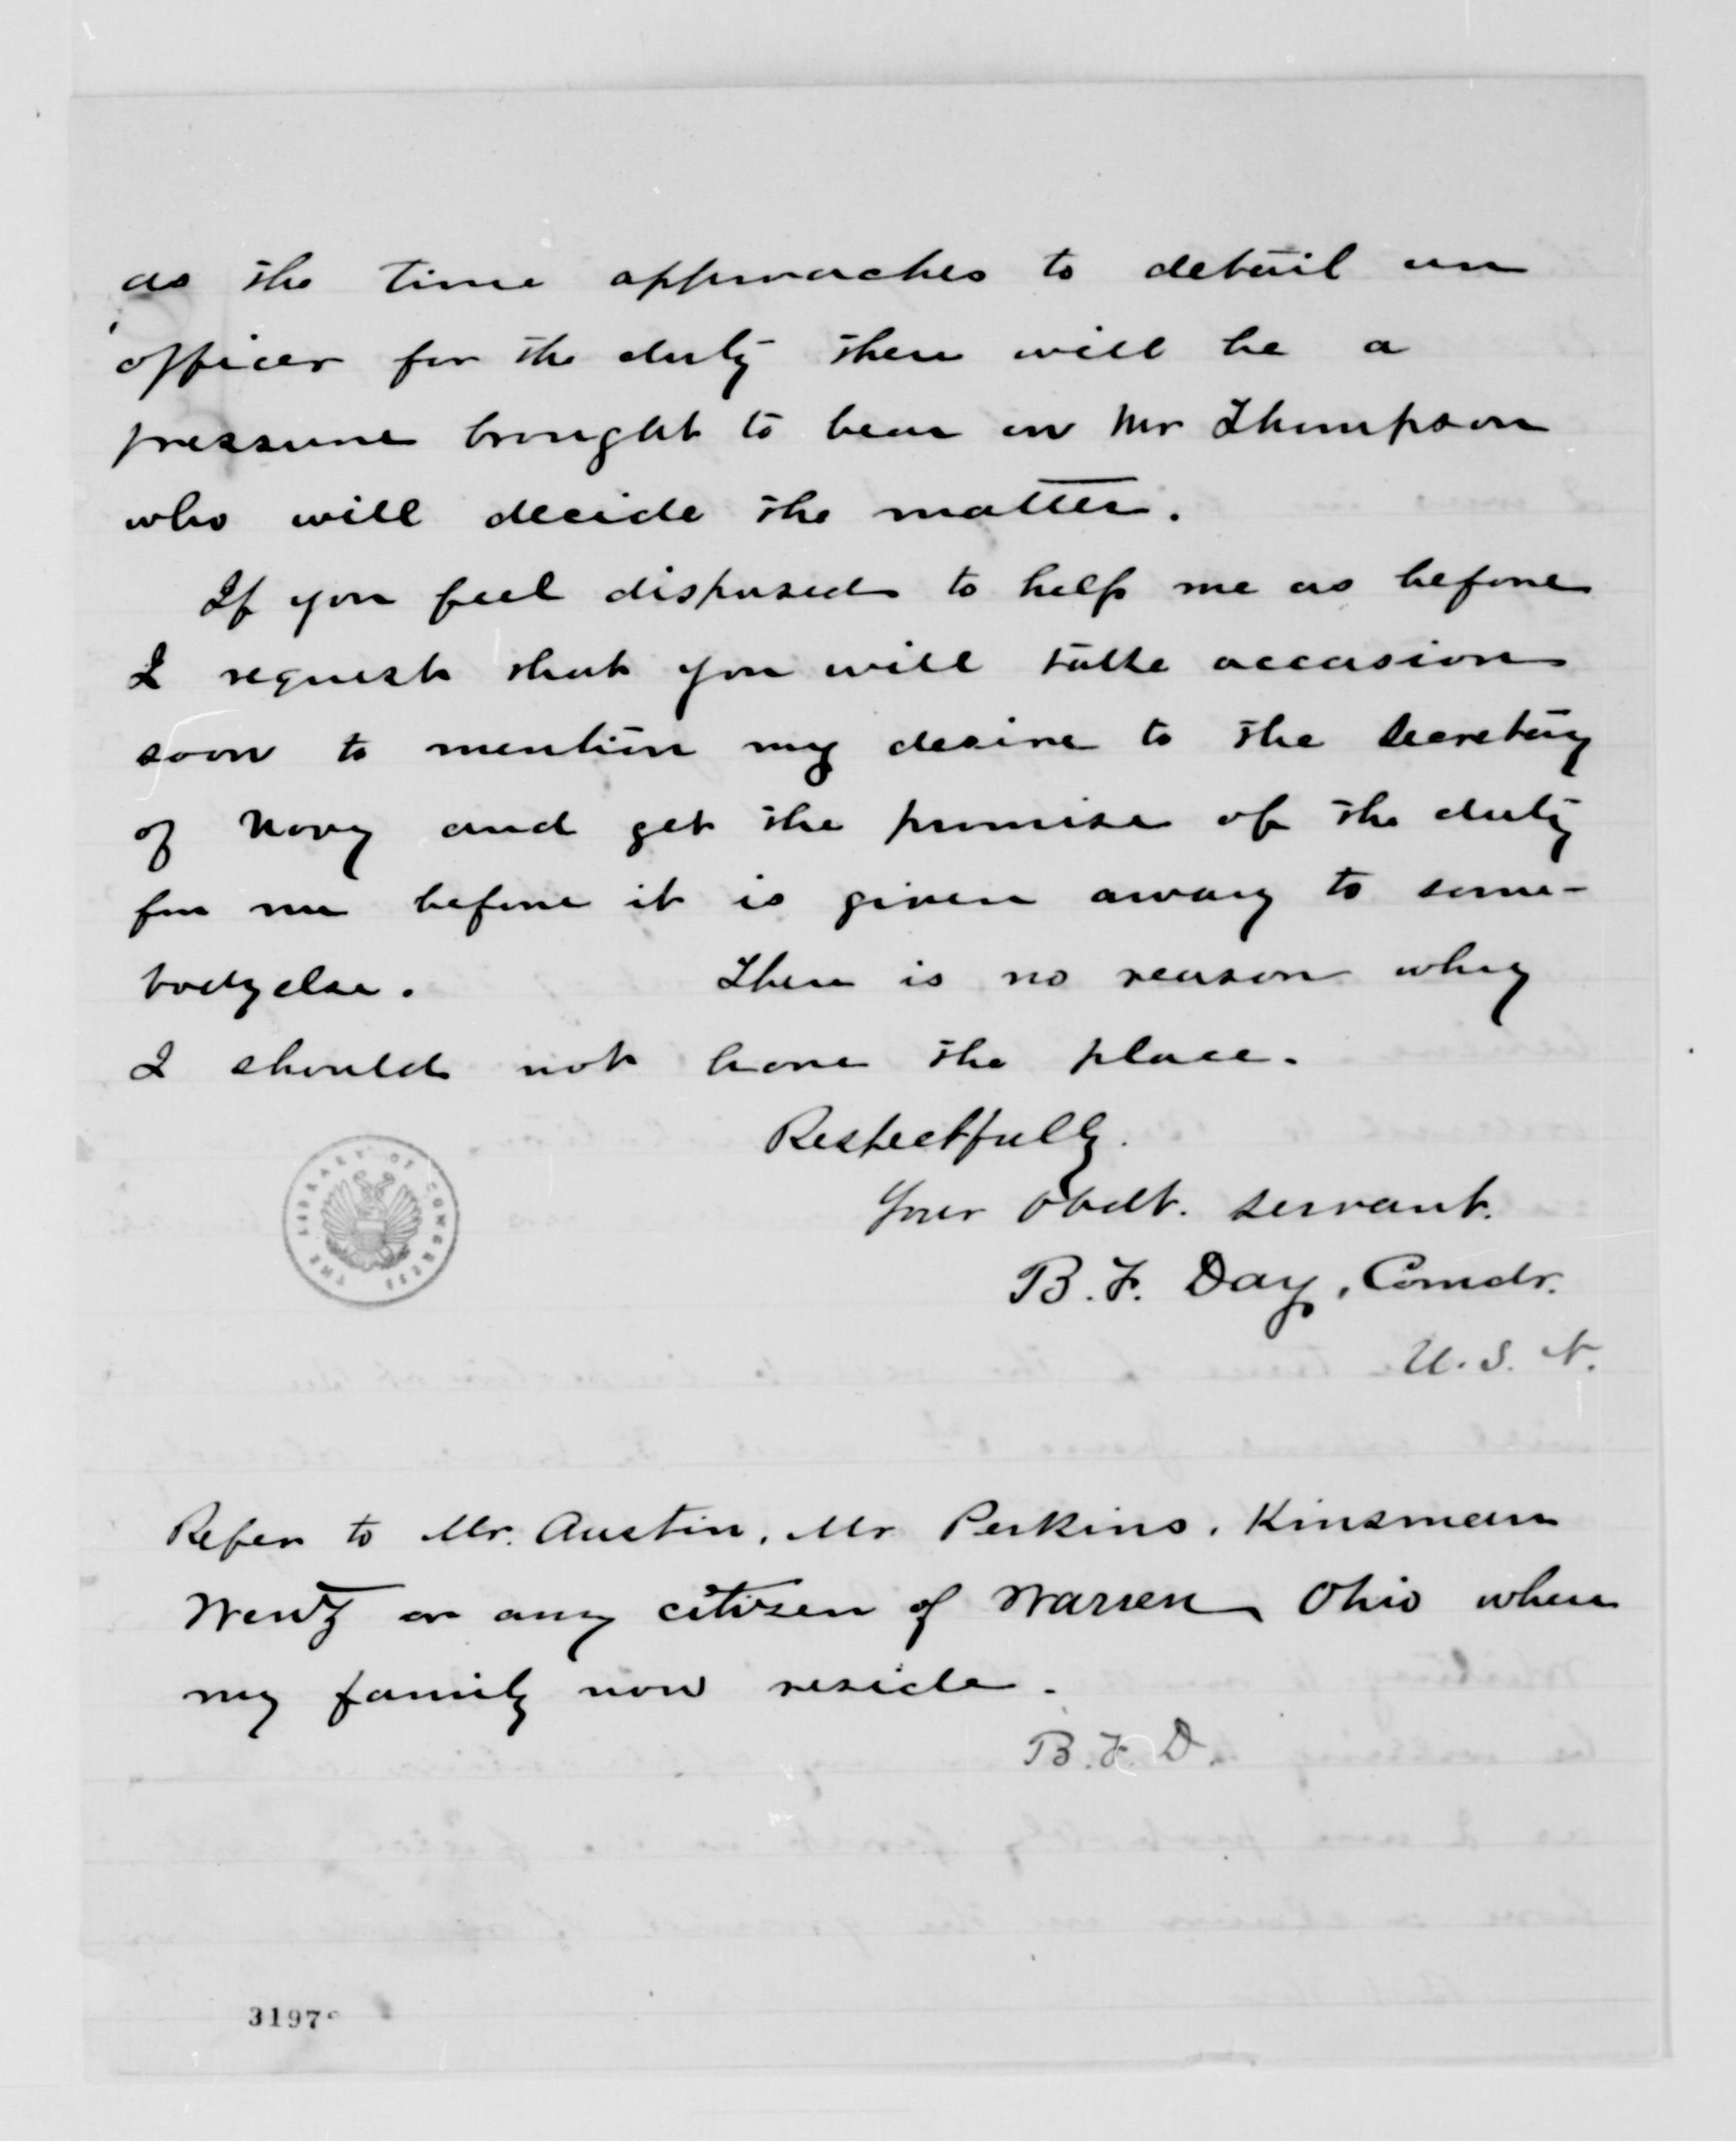 as the time approaches to detail an
officer for the duty there will be a
pressure brought to bear on Mr Thompson
who will decide the matter.
If you feel disposed to help me as before
I request that you will take occasion
soon to mention my desire to the Secretary
of Navy and get the promise of the duty
for me before it is given away to some-
body else. There is no reason why
I should not have the place.
Respectfully.
Your obdt. servant.
B. F. Day, Comdr.
U. S. N.
THE LIBRARY OF CONGRESS
Refer to Mr. Austin, Mr Perkins, Kinsman
Wentz or any citizen of Warren Ohio where
my family now reside.
B. F. D.
3197